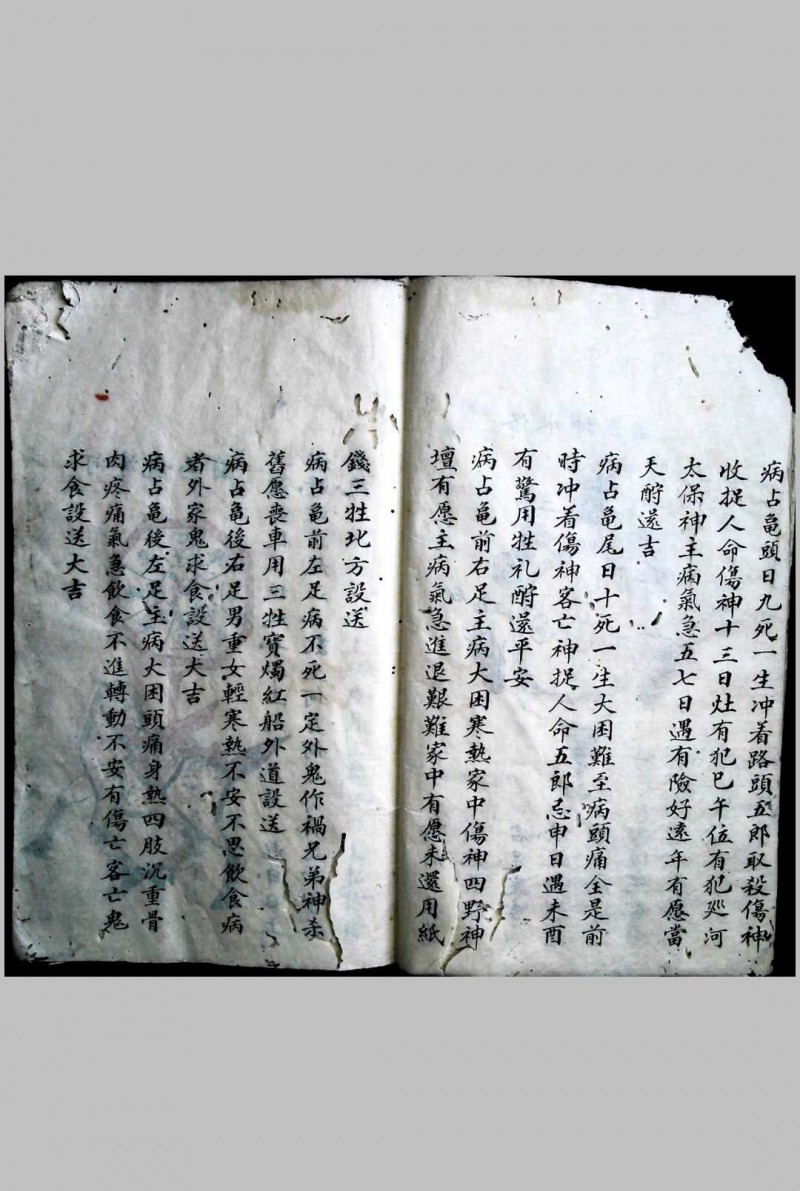 病占亀頭日九死一生冲着路頭五郎取殺傷神
收捉人命傷神十三日灶有犯巳午位有犯廵河
太保神主病氣急五七日遇有險好遠年有愿當
天酧送吉
病占亀尾日十死一生大困難至病頭痛全是前
時冲着傷神客亡神捉人命五郎忌申日遇未酉
有驚用牲礼酧還平安
病占亀前右足主病大困寒熱家中傷神四野神
壇有愿主病氣急進退艱難家中有愿未還用紙
錢三牲北方設送
病占亀前左足病不死一定外鬼作禍兄弟神杀
舊愿喪車用三牲寳燭紅船外道設送
病占亀後右足男重女輕寒熱不安不思飲食病
者外家鬼求食設送大吉
病占亀後左足主病大困頭痛身熱四肢沉重骨
肉疼痛氣急飲食不進轉動不安有傷亡客亡鬼
求食設送大吉